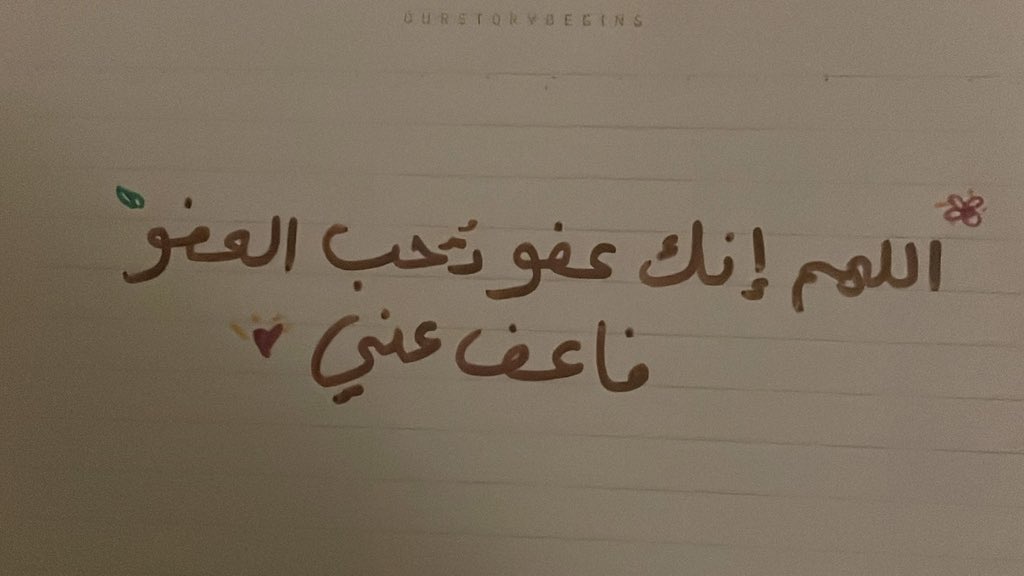 OURSTORYBEGINS
اللهم إنك عفو تُحب العفو
فاعف عني